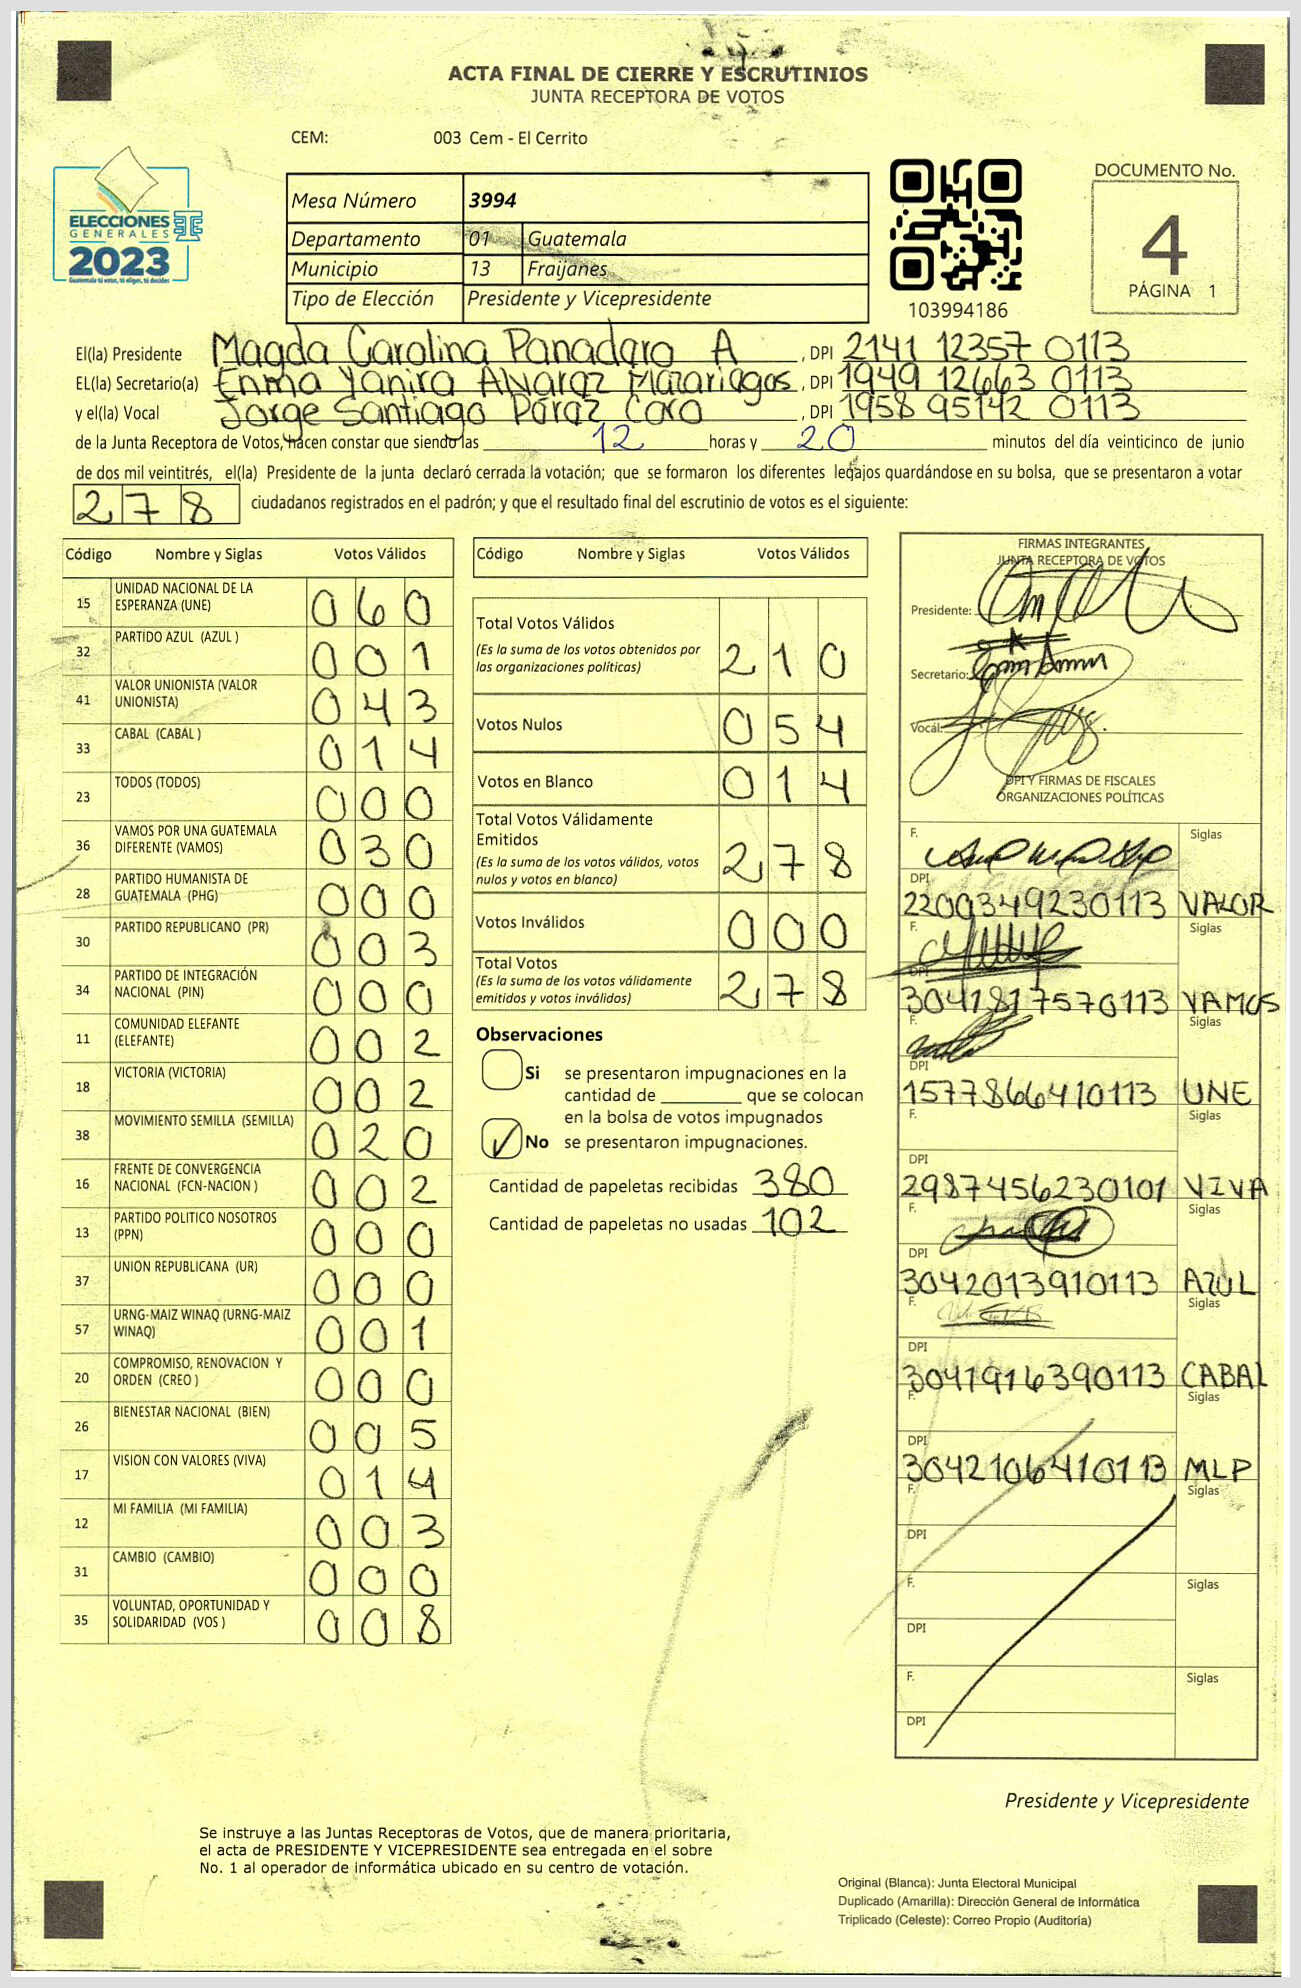 ACTA FINAL DE CIERRE Y ESCRUTINIOS
JUNTA RECEPTORA DE VOTOS
CEM: 003 Cem - El Cerrito
ELECCIONES
GENERALES
2023
Guatemala tú votas, tú eliges, tú decides
Mesa Número 3994
Departamento 01 Guatemala
Municipio 13 Fraijanes
Tipo de Elección Presidente y Vicepresidente
103994186
DOCUMENTO No.
4
PÁGINA 1
El(la) Presidente Magda Carolina Panadero A , DPI 2141 12357 0113
EL(la) Secretario(a) Enma Yanira Alvarez Mazariegos , DPI 1949 12663 0113
y el(la) Vocal Jorge Santiago Pérez Caro , DPI 1958 95142 0113
de la Junta Receptora de Votos, hacen constar que siendo las 12 horas y 20 minutos del día veinticinco de junio
de dos mil veintitrés, el(la) Presidente de la junta declaró cerrada la votación; que se formaron los diferentes legajos quardándose en su bolsa, que se presentaron a votar
278 ciudadanos registrados en el padrón; y que el resultado final del escrutinio de votos es el siguiente:
Código Nombre y Siglas Votos Válidos
15 UNIDAD NACIONAL DE LA ESPERANZA (UNE) 060
32 PARTIDO AZUL (AZUL ) 001
41 VALOR UNIONISTA (VALOR UNIONISTA) 043
33 CABAL (CABAL ) 014
23 TODOS (TODOS) 000
36 VAMOS POR UNA GUATEMALA DIFERENTE (VAMOS) 030
28 PARTIDO HUMANISTA DE GUATEMALA (PHG) 000
30 PARTIDO REPUBLICANO (PR) 003
34 PARTIDO DE INTEGRACIÓN NACIONAL (PIN) 000
11 COMUNIDAD ELEFANTE (ELEFANTE) 002
18 VICTORIA (VICTORIA) 002
38 MOVIMIENTO SEMILLA (SEMILLA) 020
16 FRENTE DE CONVERGENCIA NACIONAL (FCN-NACION ) 002
13 PARTIDO POLITICO NOSOTROS (PPN) 000
37 UNION REPUBLICANA (UR) 000
57 URNG-MAIZ WINAQ (URNG-MAIZ WINAQ) 001
20 COMPROMISO, RENOVACION Y ORDEN (CREO ) 000
26 BIENESTAR NACIONAL (BIEN) 005
17 VISION CON VALORES (VIVA) 014
12 MI FAMILIA (MI FAMILIA) 003
31 CAMBIO (CAMBIO) 000
35 VOLUNTAD, OPORTUNIDAD Y SOLIDARIDAD (VOS ) 008
Código Nombre y Siglas Votos Válidos
Total Votos Válidos 210
(Es la suma de los votos obtenidos por
las organizaciones políticas)
Votos Nulos 054
Votos en Blanco 014
Total Votos Válidamente
Emitidos 278
(Es la suma de los votos válidos, votos
nulos y votos en blanco)
Votos Inválidos 000
Total Votos 278
(Es la suma de los votos válidamente
emitidos y votos inválidos)
Observaciones
Si se presentaron impugnaciones en la
cantidad de ________ que se colocan
en la bolsa de votos impugnados
No se presentaron impugnaciones.
Cantidad de papeletas recibidas 380
Cantidad de papeletas no usadas 102
FIRMAS INTEGRANTES
JUNTA RECEPTORA DE VOTOS
Presidente:
Secretario:
Vocal:
DPI Y FIRMAS DE FISCALES
ORGANIZACIONES POLÍTICAS
F. Siglas
DPI 2200349230113 VALOR
F. Siglas
DPI 3041817570113 VAMOS
F. Siglas
DPI 1577866410113 UNE
F. Siglas
DPI 2987456230101 VIVA
F. Siglas
DPI 3042013910113 AZUL
F. Siglas
DPI 3041916390113 CABAL
F. Siglas
DPI 3042106410113 MLP
F. Siglas
DPI
F. Siglas
DPI
F. Siglas
DPI
Presidente y Vicepresidente
Se instruye a las Juntas Receptoras de Votos, que de manera prioritaria,
el acta de PRESIDENTE Y VICEPRESIDENTE sea entregada en el sobre
No. 1 al operador de informática ubicado en su centro de votación.
Original (Blanca): Junta Electoral Municipal
Duplicado (Amarilla): Dirección General de Informática
Triplicado (Celeste): Correo Propio (Auditoría)